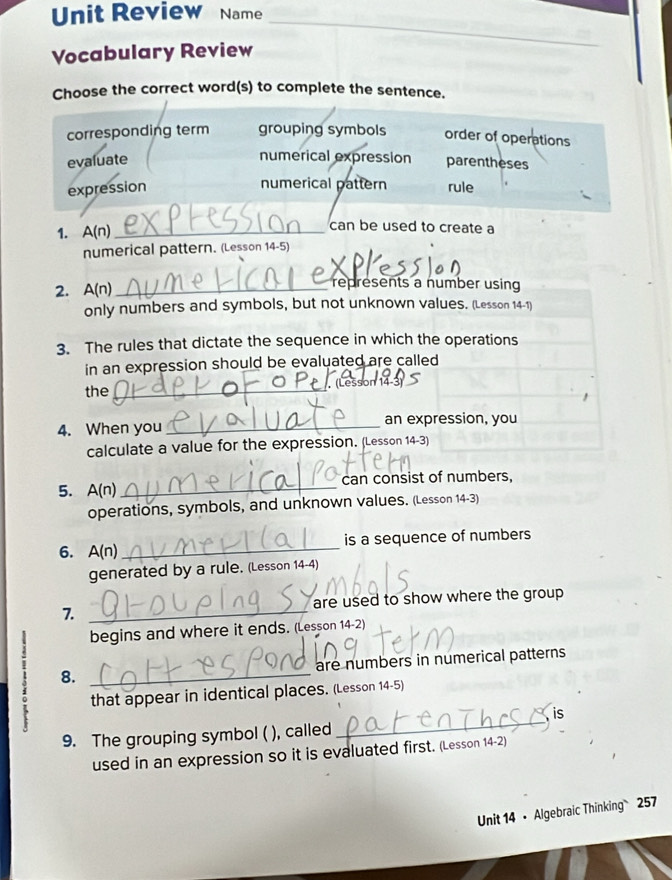 Unit Review Name
Vocabulary Review
Choose the correct word(s) to complete the sentence.
corresponding term grouping symbols order of operations
evaluate numerical expression parentheses
expression numerical pattern rule
1. A(n) expression can be used to create a
numerical pattern. (Lesson 14-5)
2. A(n) numerical expression represents a number using
only numbers and symbols, but not unknown values. (Lesson 14-1)
3. The rules that dictate the sequence in which the operations
in an expression should be evaluated are called
the order of operations. (Lesson 14-3)
4. When you evaluate an expression, you
calculate a value for the expression. (Lesson 14-3)
5. A(n) numerical pattern can consist of numbers,
operations, symbols, and unknown values. (Lesson 14-3)
6. A(n) numerical is a sequence of numbers
generated by a rule. (Lesson 14-4)
7. grouping symbols are used to show where the group
begins and where it ends. (Lesson 14-2)
8. corresponding term are numbers in numerical patterns
that appear in identical places. (Lesson 14-5)
9. The grouping symbol ( ), called parentheses, is
used in an expression so it is evaluated first. (Lesson 14-2)
Copyright © McGraw-Hill Education
Unit 14 • Algebraic Thinking 257